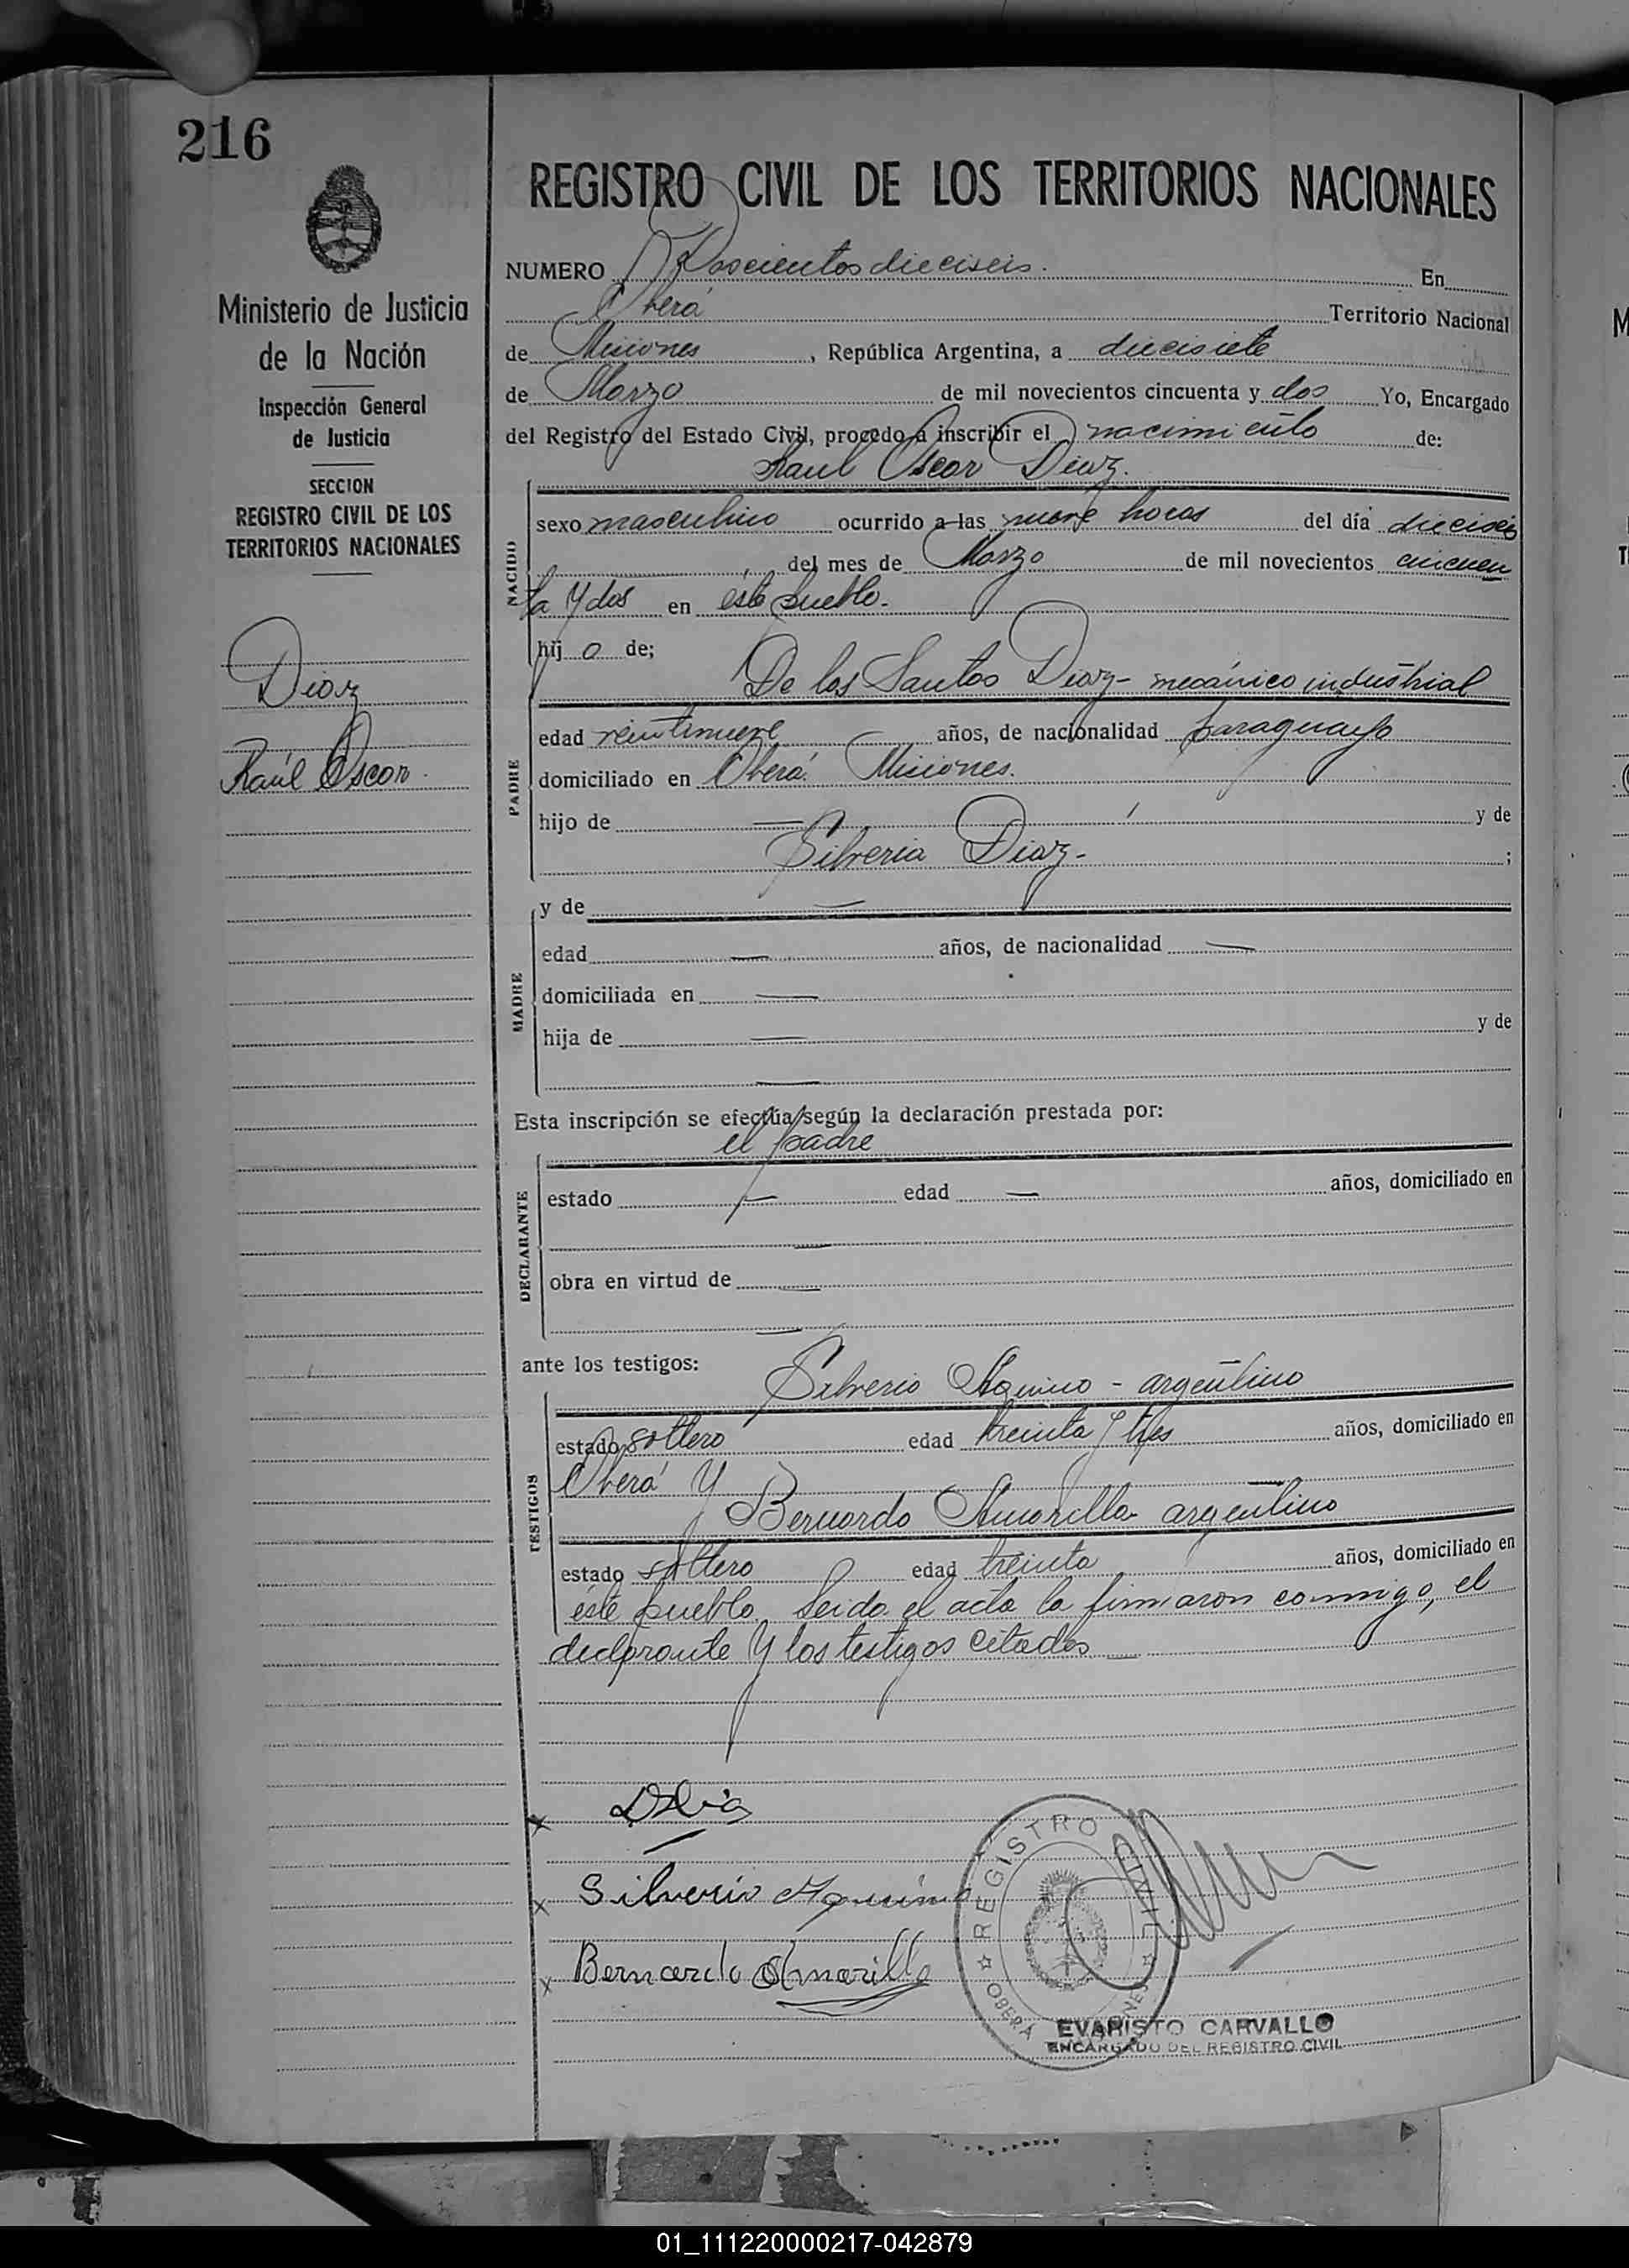 216
Ministerio de Justicia
de la Nación
Inspección General
de Justicia
SECCION
REGISTRO CIVIL DE LOS
TERRITORIOS NACIONALES
Diaz
Raúl Oscar.
REGISTRO CIVIL DE LOS TERRITORIOS NACIONALES
NUMERO Doscientos dieciseis. En
Oberá Territorio Nacional
de Misiones, República Argentina, a diecisiete
de Marzo de mil novecientos cincuenta y dos Yo, Encargado
del Registro del Estado Civil, procedo a inscribir el nacimiento de:
Raul Oscar Diaz.
NACIDO
sexo masculino ocurrido a las nueve horas del día dieciseis
del mes de Marzo de mil novecientos cincuen
ta y dos en éste pueblo.
hij o de;
De los Santos Diaz - mecánico industrial
PADRE
edad veintinueve años, de nacionalidad paraguayo
domiciliado en Oberá. Misiones.
hijo de — y de
Silveria Diaz- ;
MADRE
y de —
edad — años, de nacionalidad —
domiciliada en —
hija de — y de
—
Esta inscripción se efectúa según la declaración prestada por:
el padre
DECLARANTE
estado — edad — años, domiciliado en
—
obra en virtud de —
—
ante los testigos:
Silverio Aquino - argentino
TESTIGOS
estado soltero edad treinta y tres años, domiciliado en
Oberá y —
Bernardo Amarilla argentino
estado soltero edad treinta años, domiciliado en
éste pueblo. Leida el acta la firmaron conmigo, el
declarante y los testigos citados —
x
x Silverio Aquino
x Bernardo Amarilla
REGISTRO CIVIL
OBERÁ
EVARISTO CARVALLO
ENCARGADO DEL REGISTRO CIVIL
01_111220000217-042879